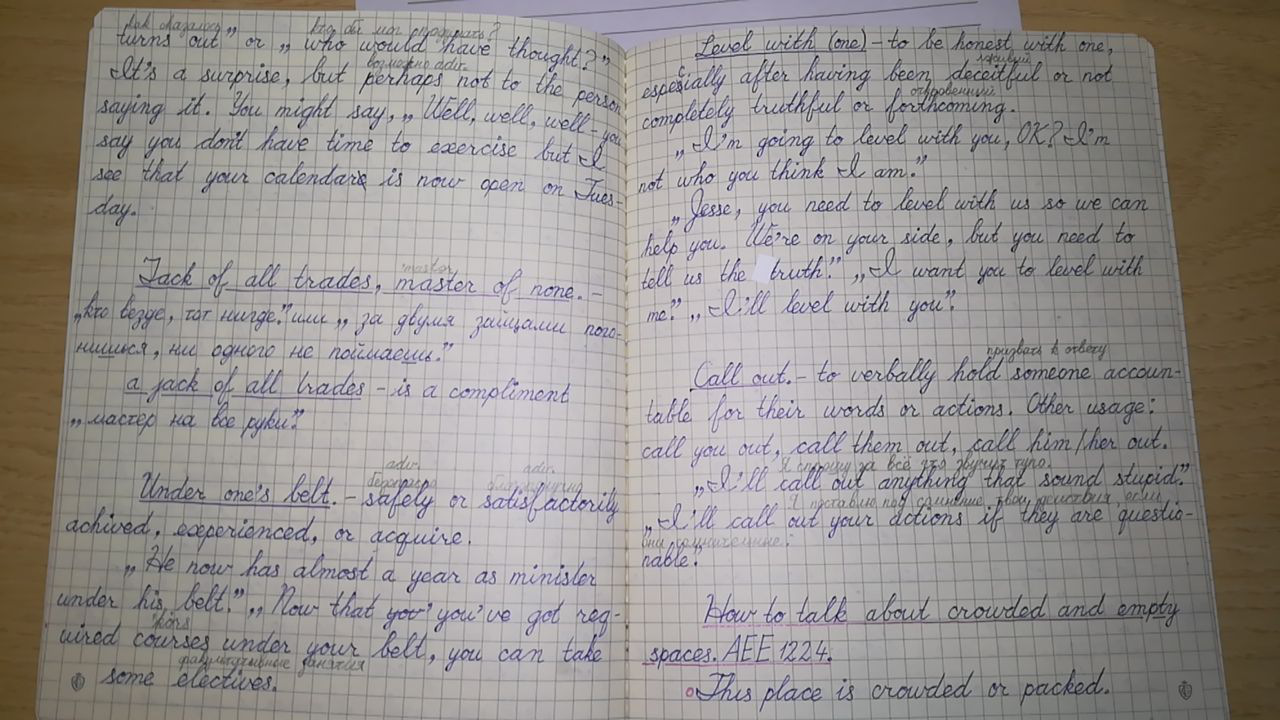 как оказалось кто бы мог подумать?
turns out” or „ who would have thought?”
возможно adv.
It's a surprise, but perhaps not to the person
saying it. You might say, „ Well, well, well – you
say you don't have time to exercise but I
see that your calendar is now open on Tues-
day.
master
Jack of all trades, master of none. –
„Кто везде, тот нигде.” или „ за двумя зайцами пого-
нишься, ни одного не поймаешь.”
a jack of all trades – is a compliment
„мастер на все руки.”
adv. adv.
безопасно благополучно
Under one's belt. – safely or satisfactorily
achived, experienced, or acquire.
„He now has almost a year as minister
under his belt.” „Now that you've got req-
kors
uired courses under your belt, you can take
факультативные занятия
some electives.
Level with (one) – to be honest with one,
лживый
especially after having been deceitful or not
откровенный
completely truthful or forthcoming.
„I'm going to level with you, OK? I'm
not who you think I am.”
„Jesse, you need to level with us so we can
help you. We're on your side, but you need to
tell us the truth.” „I want you to level with
me.” „I'll level with you”.
призвать к ответу
Call out. – to verbally hold someone accoun-
table for their words or actions. Other usage:
call you out, call them out, call him/her out.
Я спрошу за всё что звучит тупо.
„I'll call out anything that sound stupid.”
Я поставлю под сомнение твои действия если
„I'll call out your actions if they are questio-
они сомнительные.
nable.”
How to talk about crowded and empty
spaces. AEE 1224.
This place is crowded or packed.